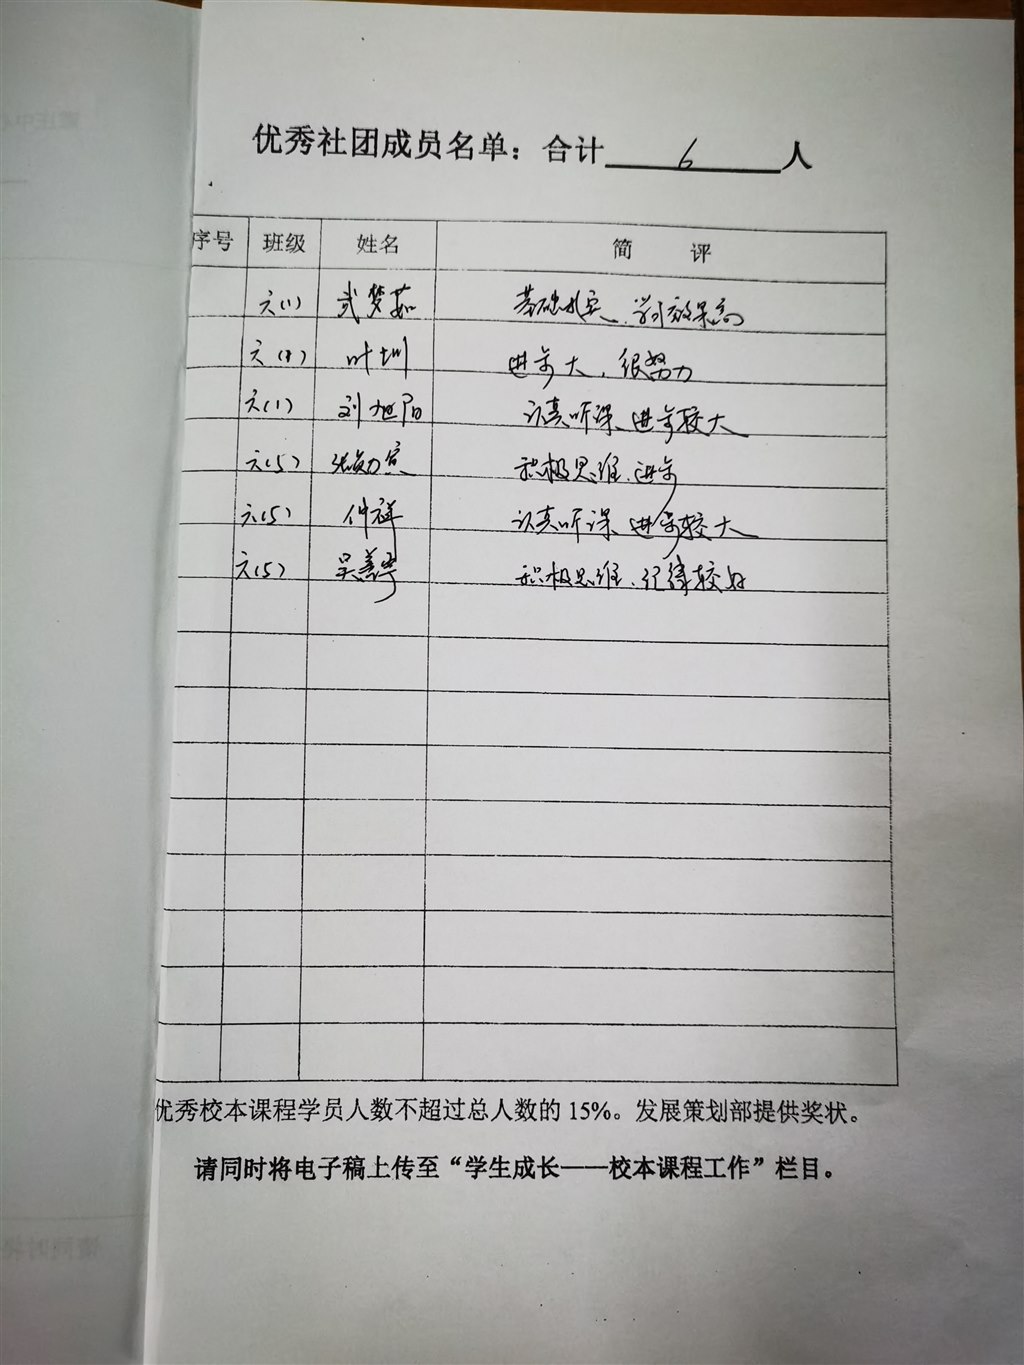 优秀社团成员名单：合计 6 人
序号 班级 姓名 简 评
六(1) 武梦茹 基础扎实、学习效果高
六(1) 叶圳 进步大、很努力
六(1) 刘旭阳 认真听课、进步较大
六(5) 积极思维、进步
六(5) 仲祥 认真听课、进步较大
六(5) 吴善宇 积极思维、纪律较好
优秀校本课程学员人数不超过总人数的 15%。发展策划部提供奖状。
请同时将电子稿上传至“学生成长——校本课程工作”栏目。